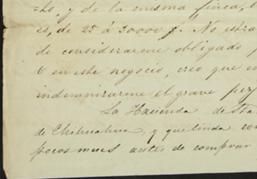 chs. y de la misma finca,
es, de 25 á 30000 $. No estra
de considerarme obligado p
6 en este negocio, creo que
indemnizarme el grave per
La Hacienda de Sta
de Chihuahua, y que linda con
pocos meses antes de comprar